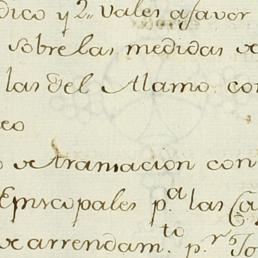 dico y 2.. vales afavor
sobre las medidas de
las del Alamo con
eo
de transacion con
Episcopales p.ª las Ca
de arrendam.to p.r